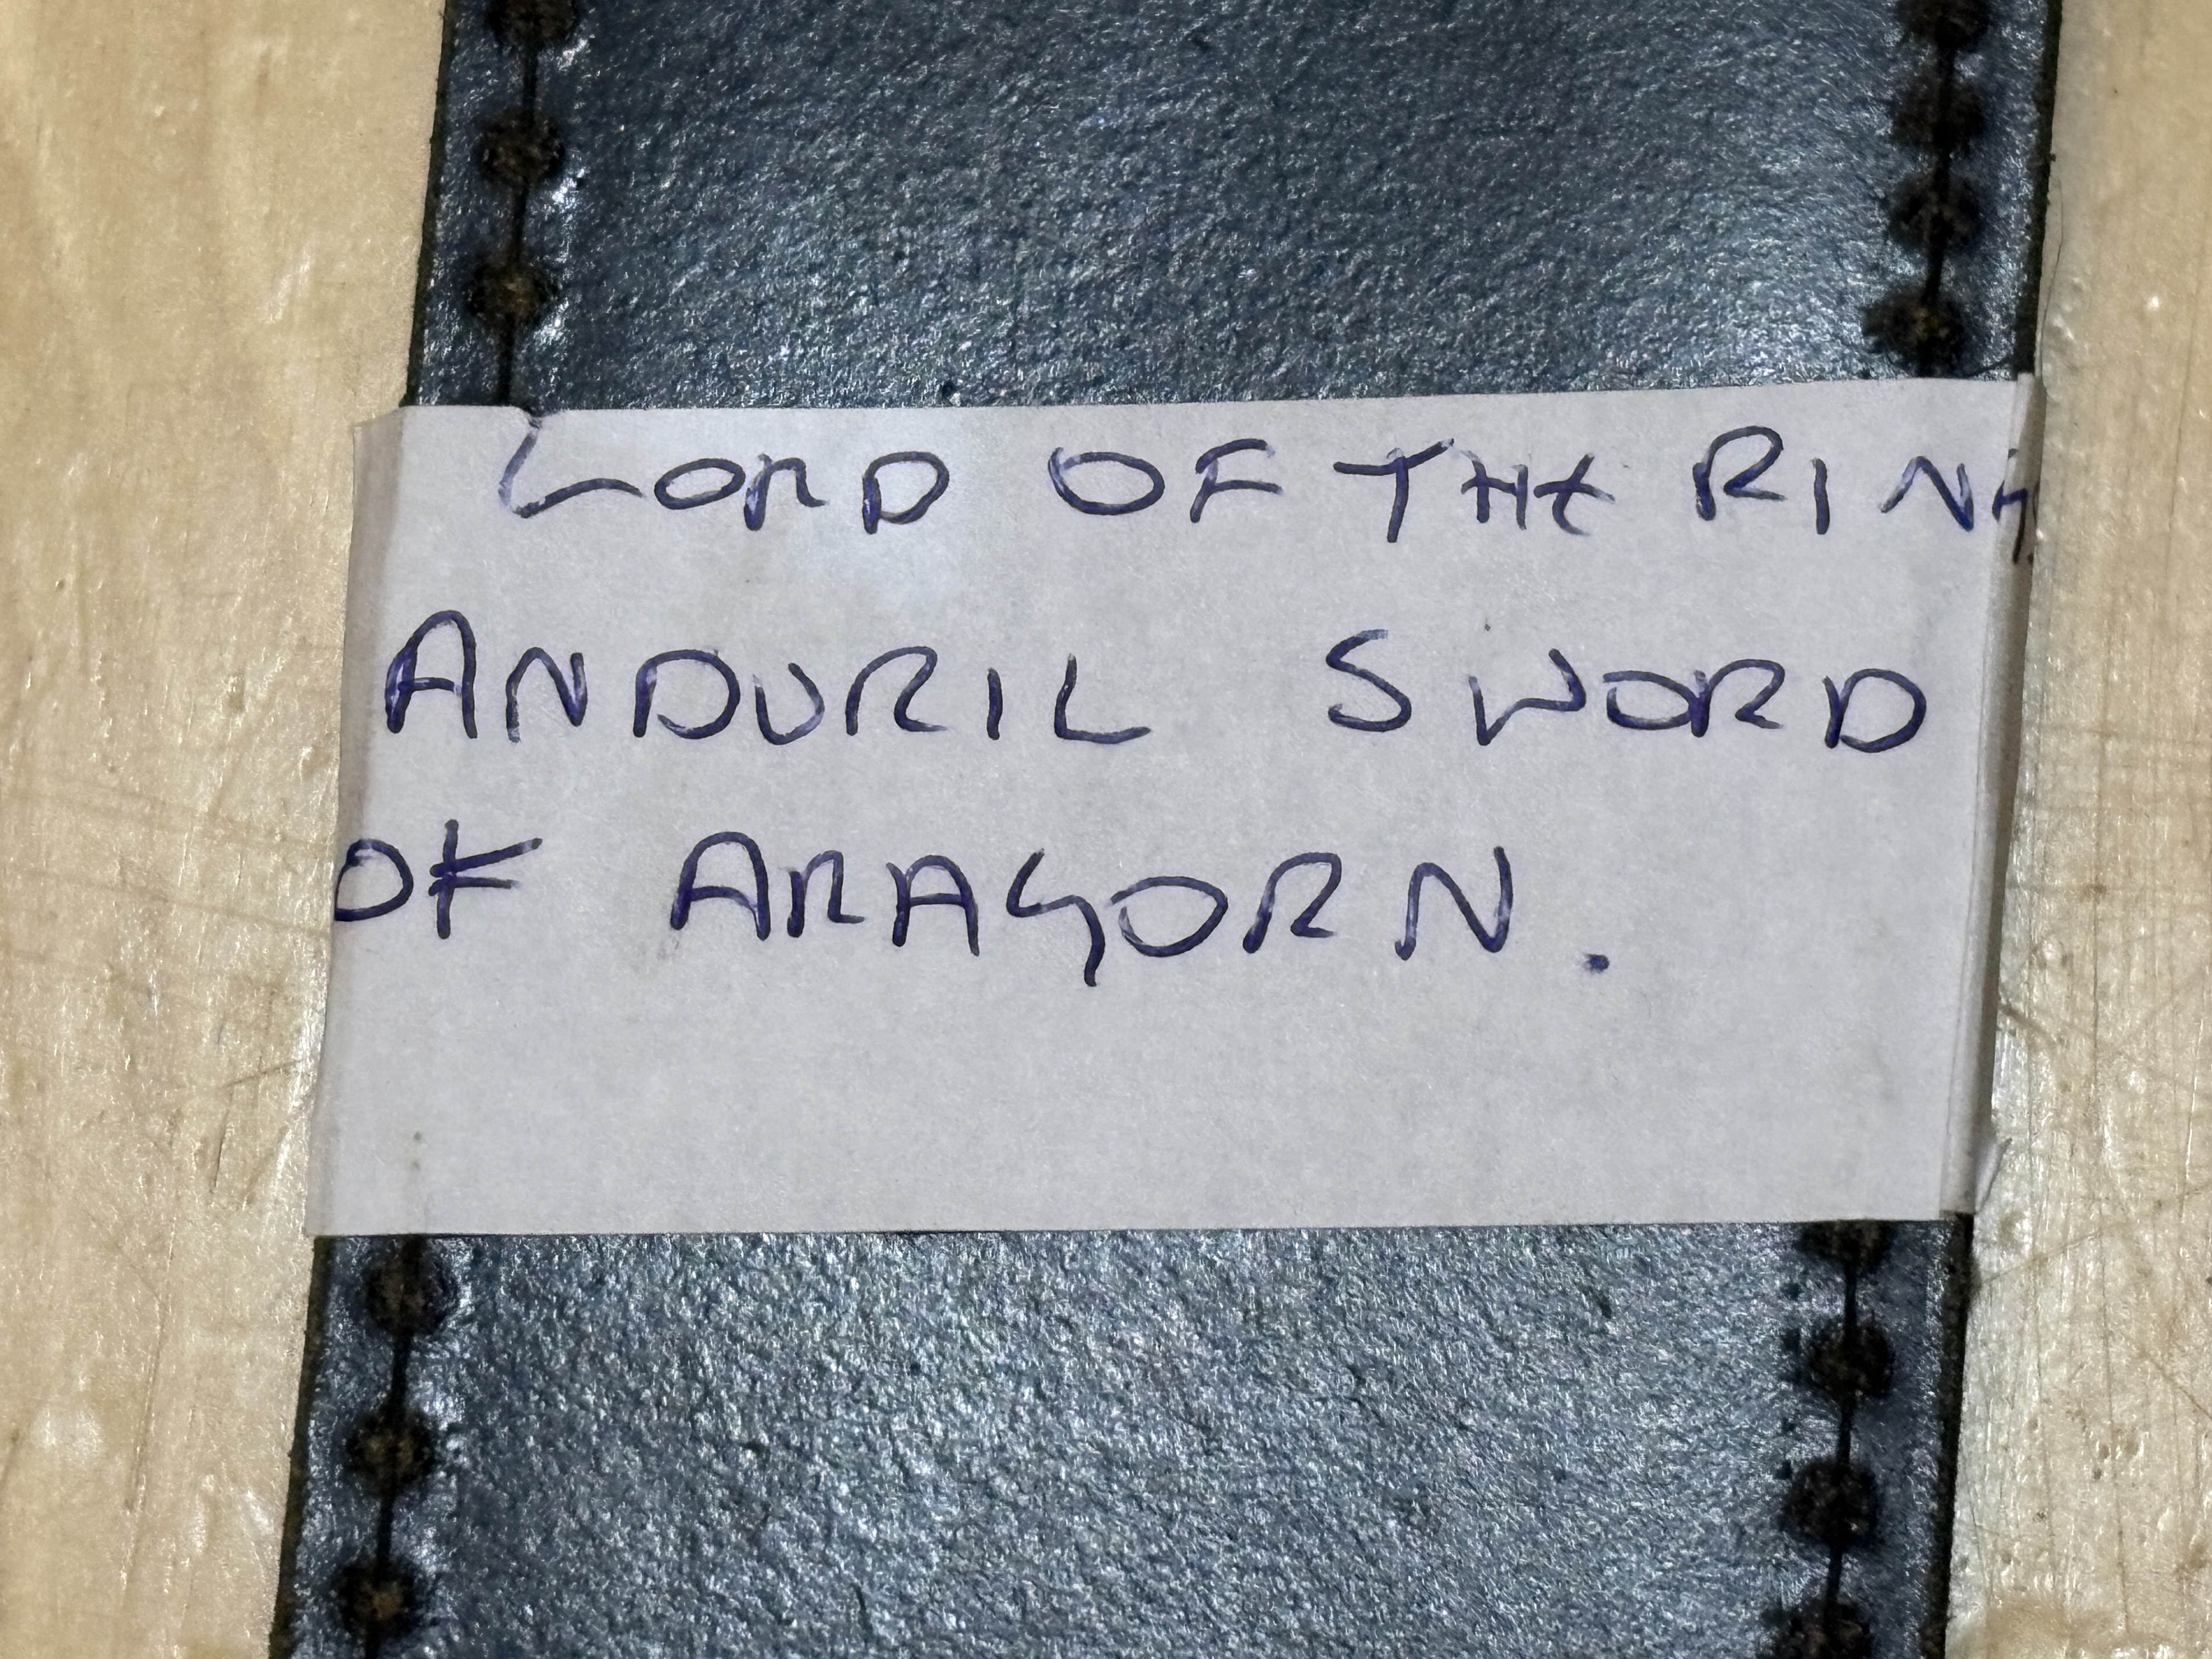 LORD OF THE RING
ANDURIL SWORD
OF ARAGORN.